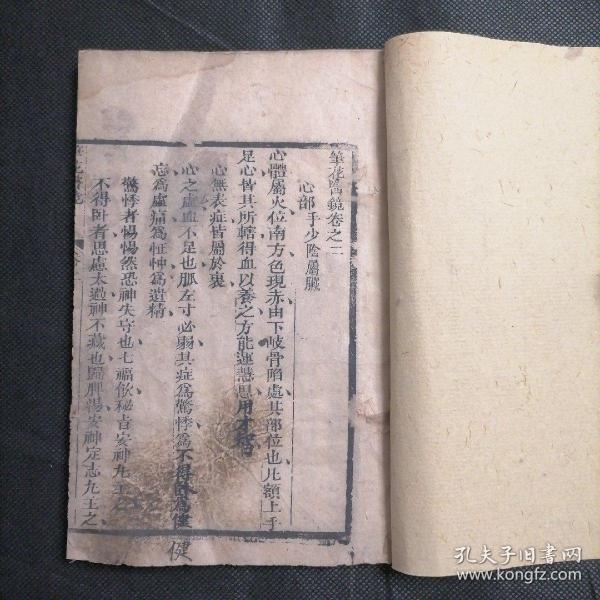 筆花醫鏡卷之二
心部手少陰屬臟
心體屬火位南方色現赤由下岐骨陷處其部位也凡額上手
足心皆其所轄得血以養之方能運慧思用才智
心無表症皆屬於裏
心之虛血不足也脈左寸必弱其症為驚悸為不得臥為健
忘為虛痛為怔忡為遺精
驚悸者惕惕然恐神失守也七福飲秘旨安神丸主之
不得臥者思慮太過神不藏也歸脾湯安神定志丸主之
健
孔夫子旧书网
www.kongfz.com